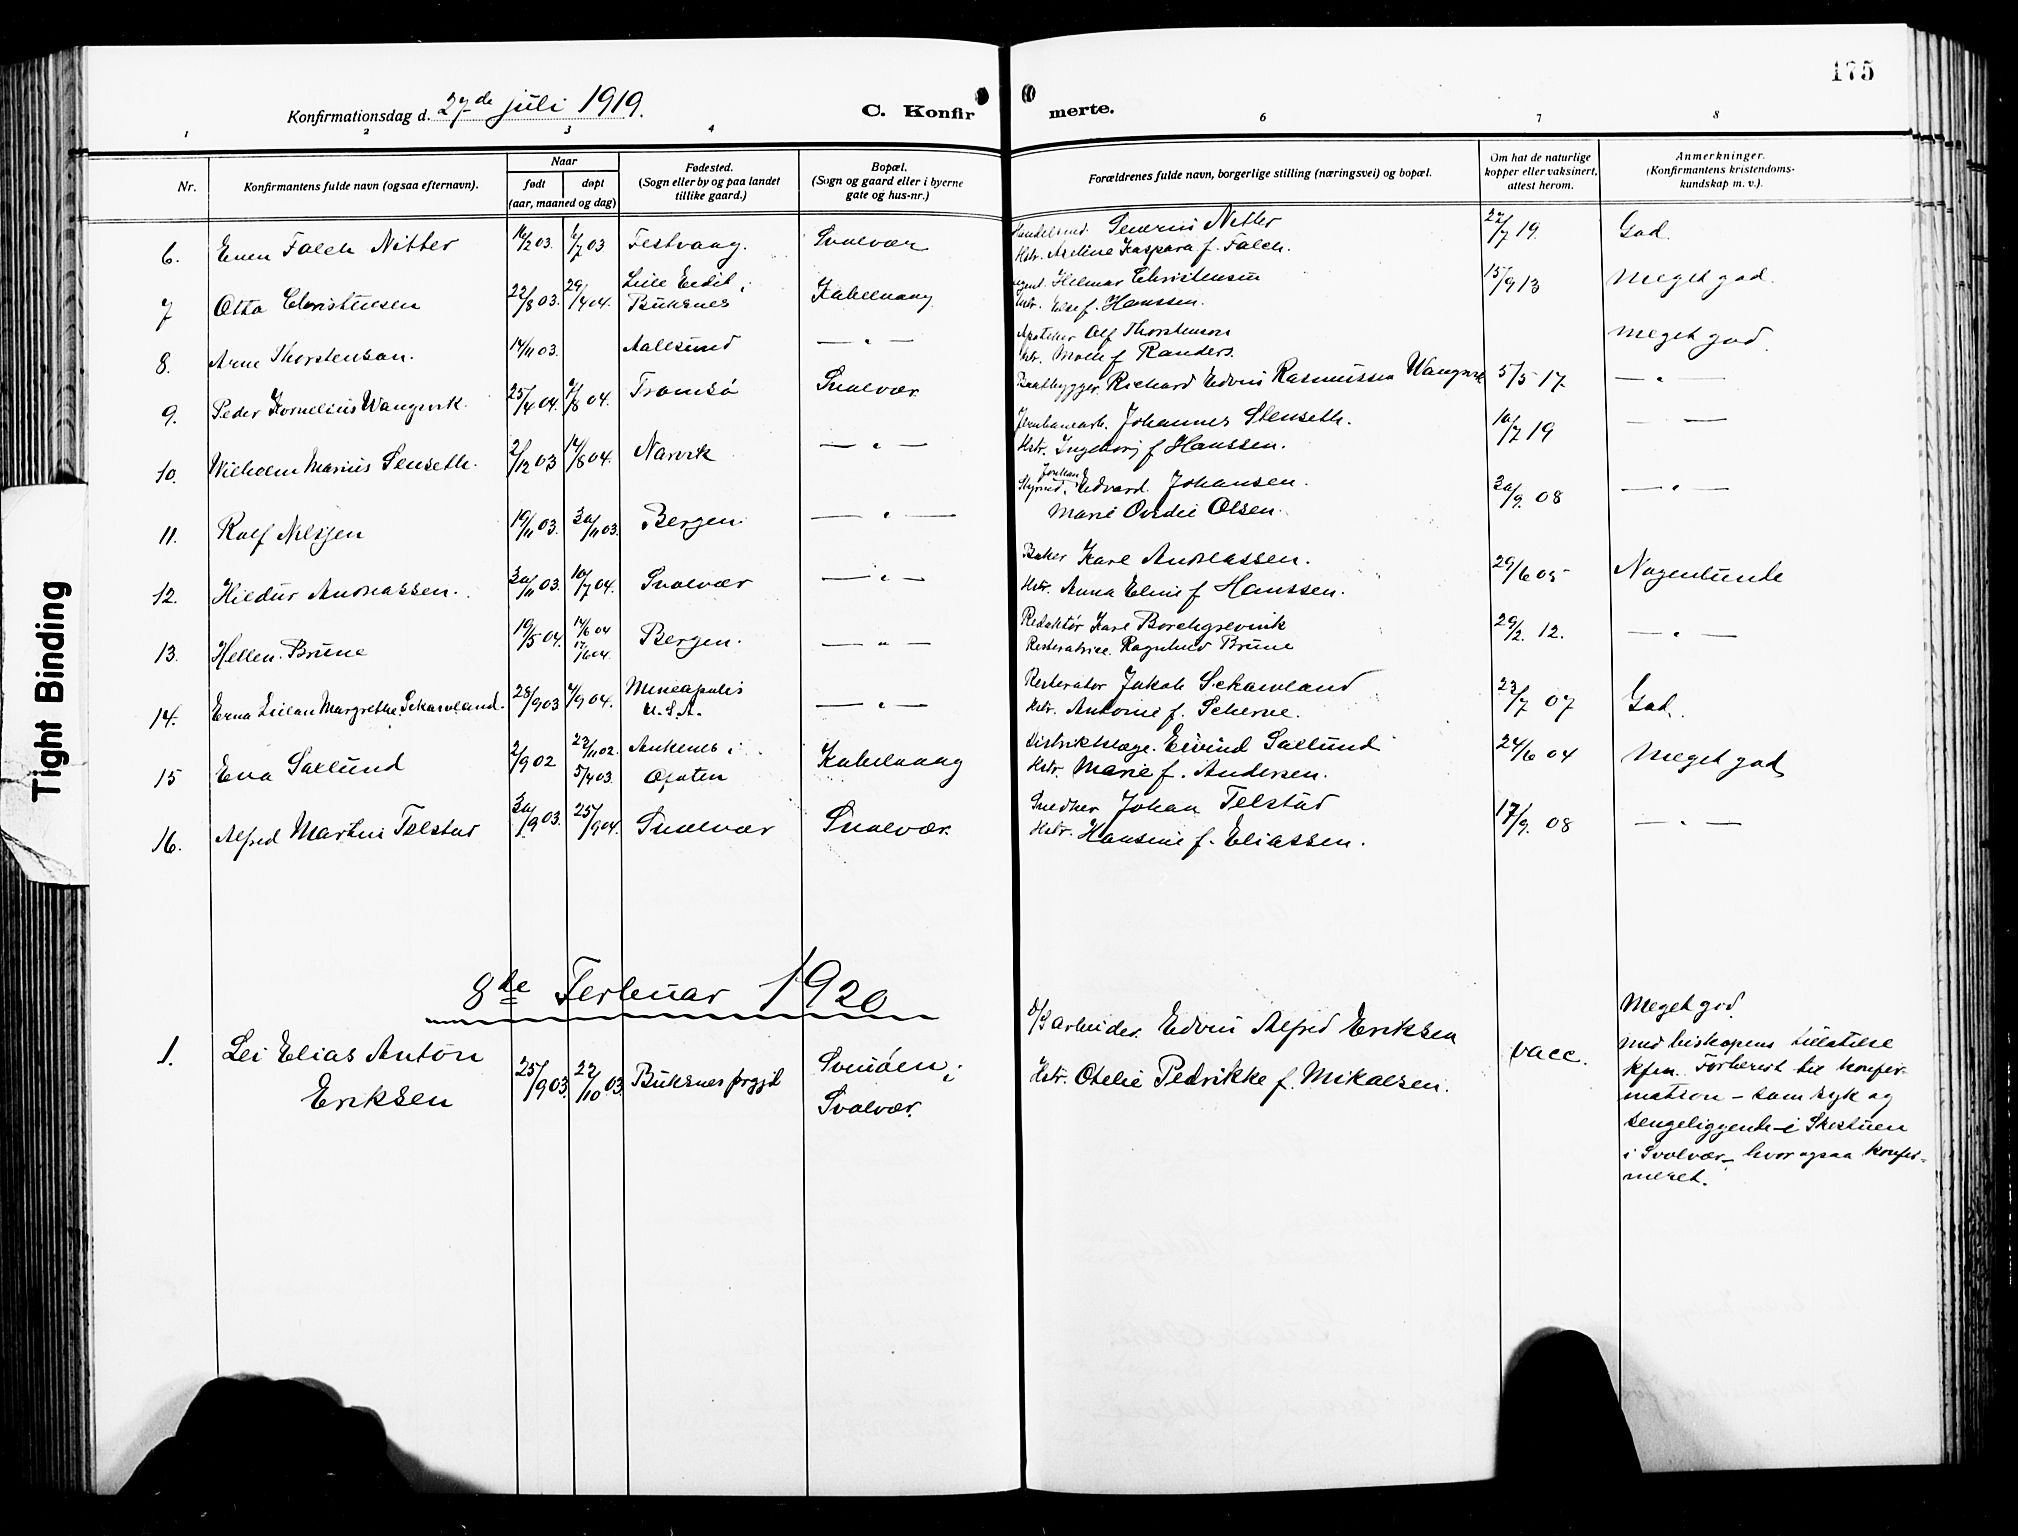 175
Konfirmationsdag d. 27de juli 1919.
C. Konfirmerte.
1 2 3 4 6 7 8
Nr.
Konfirmantens fulde navn (ogsaa efternavn).
Naar
født
døpt
(aar, maaned og dag)
Fødested.
(Sogn eller by og paa landet
tillike gaard.)
Bopæl.
(Sogn og gaard eller i byerne
gate og hus-nr.)
Forældrenes fulde navn, borgerlige stilling (næringsvei) og bopæl.
Om hat de naturlige
kopper eller vaksinert,
attest herom.
Anmerkninger.
(Konfirmantens kristendoms-
kundskap m. v.).
6. Even Falch Nitter 16/2 03. 03 Festvaag. Svolvær Severin Nitter 22/7 19. God.
Hstr. Axeline Kaspara f. Falch.
7 Otto Christensen 22/8 03. 29/4 04. Lille Eidet i Buksnes Kabelvaag agent. Hilmar Christensen 15/9 13 Meget god.
Hstr. Else f. Hanssen.
8. Arne Thorstensen. 14/11 03. Aalesund — " — Apotheker Alf Thorstenson Meget god.
Hstr. f Randers.
9. Peder Kornelius Wangsvik. 25/4 04. /8 04. Tromsø Svolvær Baatbygger Richard Edvin Rasmussen Wangsvik 5/5 17 — " —
10. Wilhelm Marius Senseth. 2/12 03 14/8 04. Narvik — " — Jernbanearb. Johannes Stenseth. 10/7 19 — —
Hstr. Ingeborg f Hanssen.
11. Rolf Nilsjen 19/11 03. 30/11 03. Bergen. — " — Edvard. Johansen. 30/9. 08 — " —
Marie Ovedie Olsen.
12. Hildur Andreassen. 30/11 03. 10/7 04. Svolvær — " — Baker Karl Andreassen. 29/6 05 Nogenlunde
Hstr. Anna Eline f Hanssen.
13. Hellen Brune 19/5 04. 14/6 04 12/6 04. Bergen. — " — Redaktør Karl Borchgrevink 29/2. 12. — " —
Restoratrice. Ragnhild Brune
14. Erna Lilian Margrethe Schawland. 28/9 03 4/9 04. Mineapolis U.S.A. — " — Restorator Jakob Schawland 23/7 07 God.
Hstr. Antonie f. Scherve.
15 Eva Saxlund 2/9 02 23/11 02. 5/4 03. Ankenes i Ofoten Kabelvaag Distriktslæge. Eivind Saxlund 24/6 04 Meget god
Hstr. Marie f. Andersen.
16. Alfred Martin Telstad 30/9 03. 25/9 04. Svolvær Svolvær. Snedker Johan Telstad 17/9. 08 — " —
Hstr. Hansine f. Eliassen.
8de Februar 1920
1. Lei Elias Anton 25/9 03. 22/10 03. Buksnes prgjd Svinøen i V/S arbeider. Edvin Alfred Eriksen vacc. Meget god.
Eriksen Svolvær. Hstr. Otelie Pedrikke f. Mikalsen.
med biskopens tillatelse
kfm. Forberedt til konfir-
mation – som syk og
sengeliggende – i Skistuen
i Svolvær –, hvor ogsaa konfir-
meret.
Tight Binding